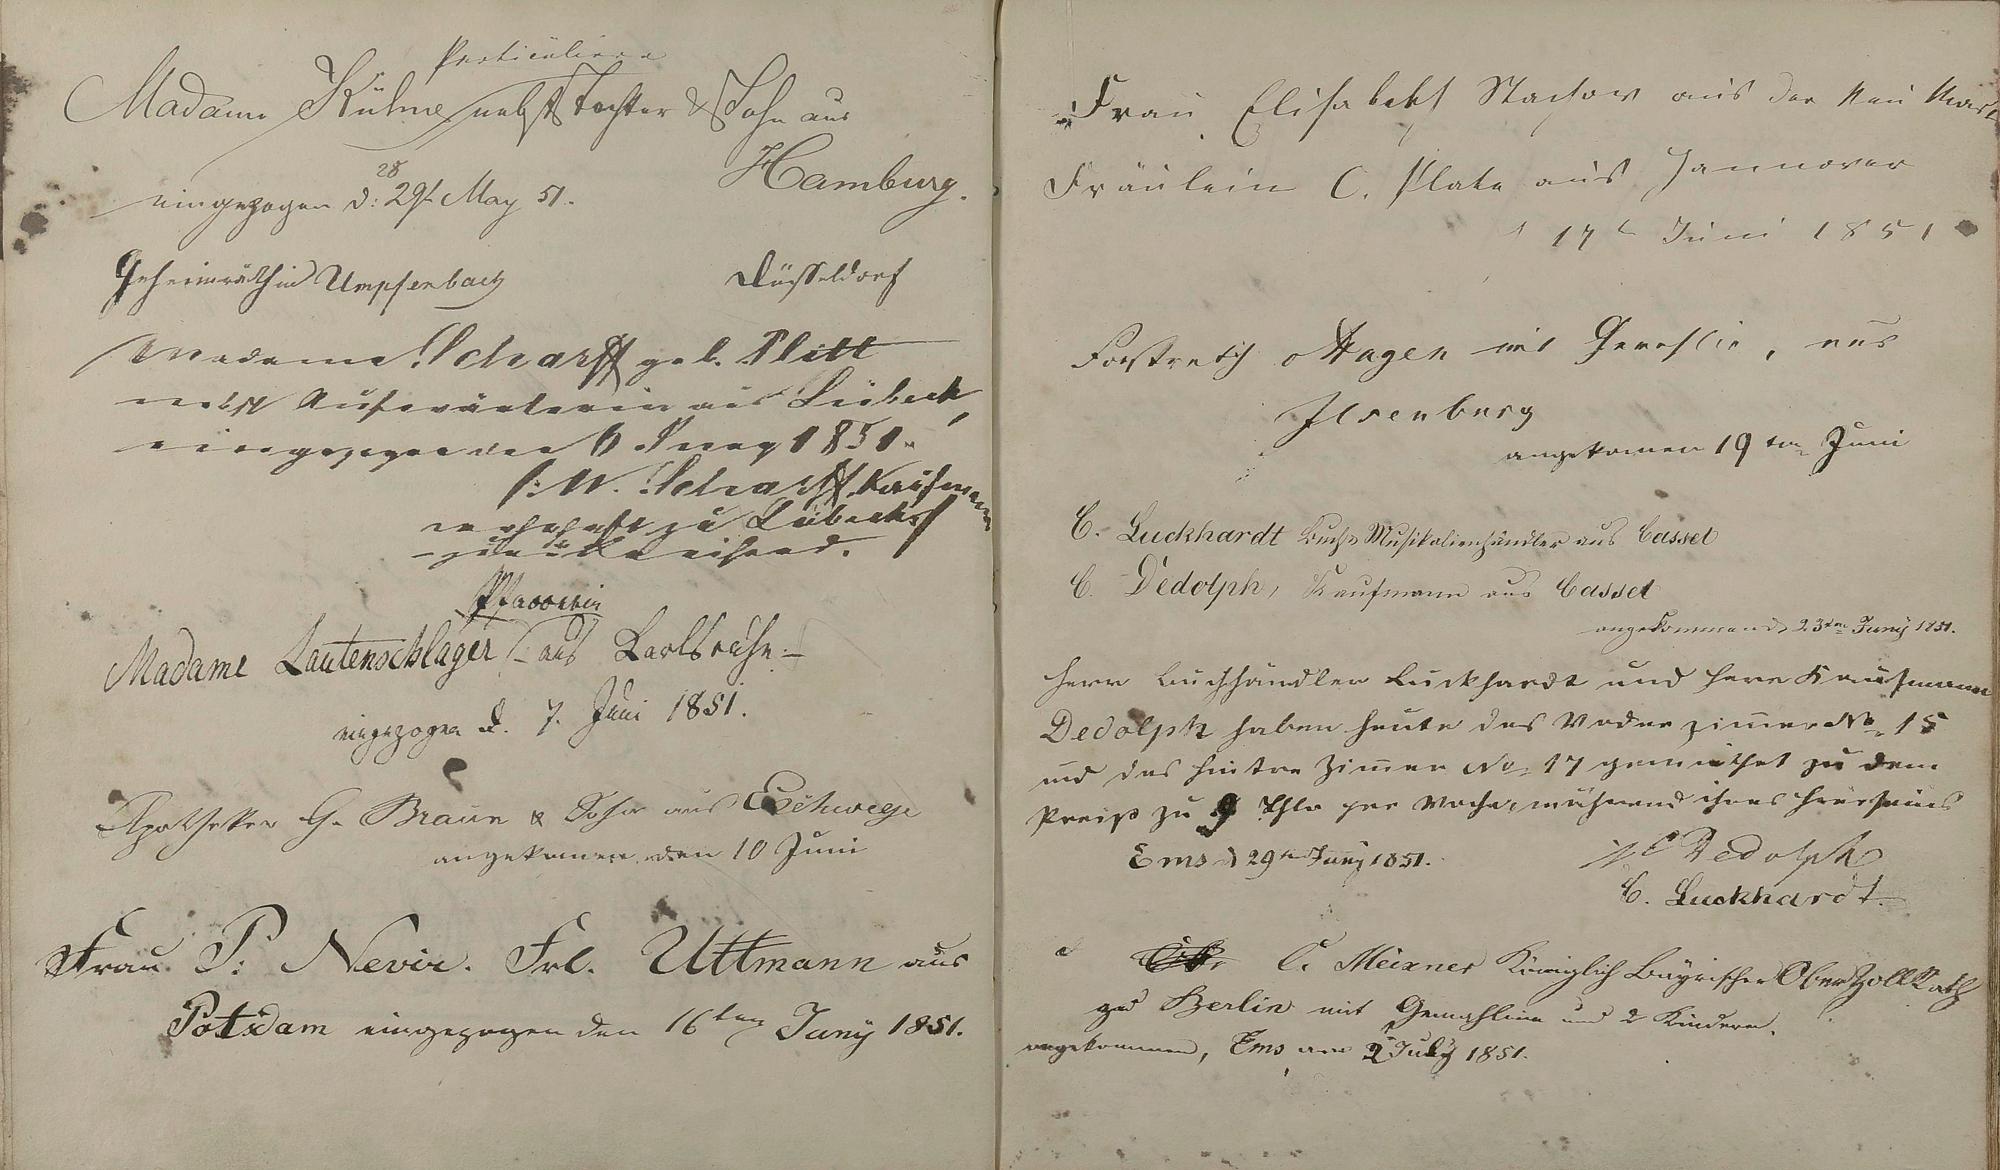 Particuliere
Madame Kühne nebst Tochter & Sohn aus
Hamburg.
28
eingezogen d: 29t May 51.
Geheimräthin Umpfenbach Düsseldorf
Madame Scharff geb. Plitt
nebst Aufwärterin aus Lübeck,
eingezogen den 6 Juny 1851.
W. Scharff, Kaufmann
wohnhaft zu Lübeck
Pfarrerin
Madame Lautenschlager aus Carlsruhe
eingezogen d. 7. Juni 1851.
Apotheker G. Braun & Sohn aus Eschwege
angekommen den 10 Juni
Frau P: Nevir. Frl. Uttmann aus
Potsdam eingezogen den 16ten Juny 1851.
Frau Elisabeth Stachow aus der Neu Mark
Fräulein C. Plate aus Hannover
17t Juni 1851
Forstrath Hagen mit Familie, aus
Ilsenburg
angekomen 19ten Juni
C. Luckhardt Buch & Musikalienhändler aus Cassel
C. Dedolph, Kaufmann aus Cassel
angekommen d. 23ten Juny 1851.
Herr Buchhändler Luckhardt und Herr Kaufmann
Dedolph haben heute das Voder zimer No. 15
und das hintre Zimer No. 17 gemiethet zu dem
Preiß zu 9 Thlr per Woche, während ihres Hierseins
Ems d 29ten Juny 1851.
C Dedolph
C. Luckhardt.
C. Meixner Königlich Bayrischer OberZollRath
zu Berlin mit Gemahlinn und 2 Kindern.
angekommen, Ems am 2t July 1851.